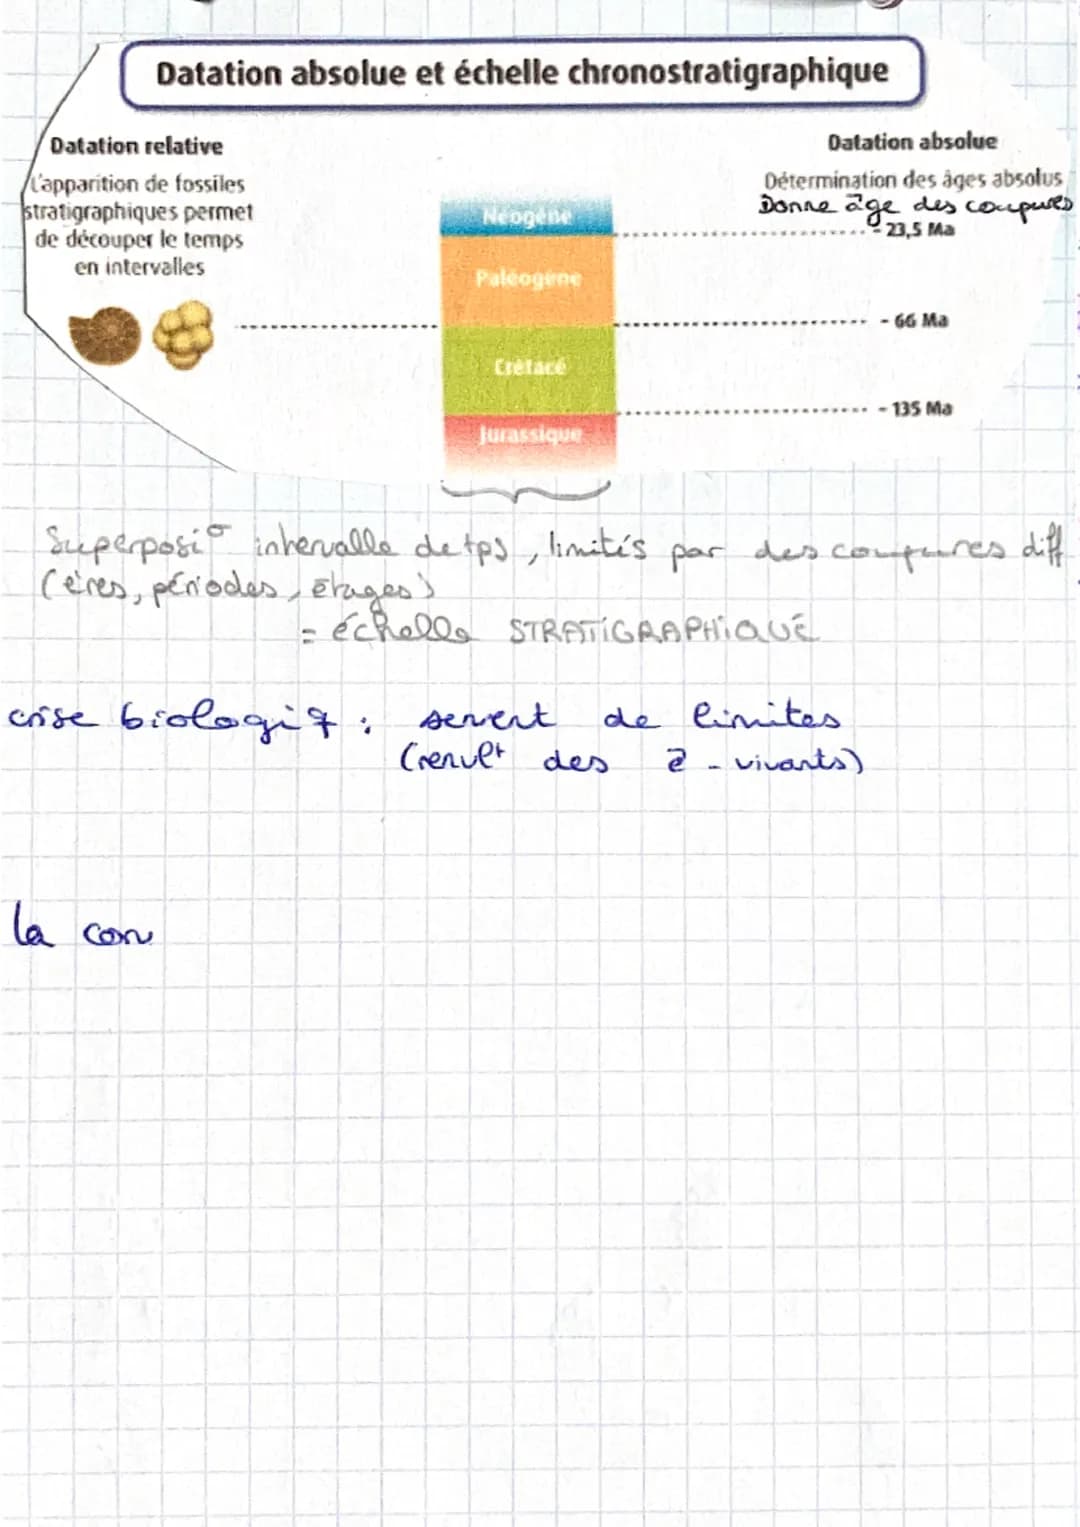 Datation absolue et échelle chronostratigraphique
Datation relative
L'apparition de fossiles
stratigraphiques permet
de découper le temps
en intervalles
Néogène
Paléogène
Crétacé
Jurassique
Datation absolue
Détermination des âges absolus
Donne âge des coupures
- 23,5 Ma
- 66 Ma
- 135 Ma
Superposi° intervalle de tps, limités par des coupures diff
(ères, périodes, étages)
= échelle STRATIGRAPHIQUE
crise biologiq : servent de limites
(renvlt des ê - vivants)
la con